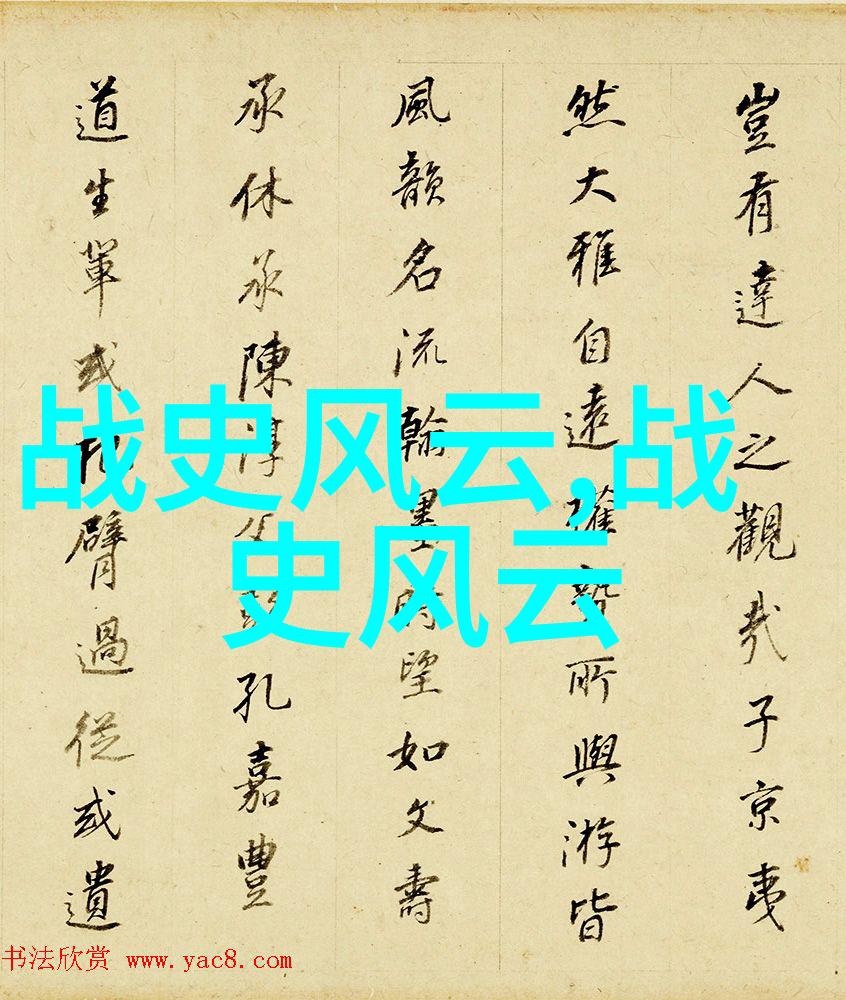 豈有達人之觀哉子京夷
然大雅自遠權勢所與游皆
風韻名流翰墨時望如文壽
承休承陳淳孔嘉豐
道生輩或臂過從或遺
战史风云,战
史风云
书法欣赏 www.yac8.com